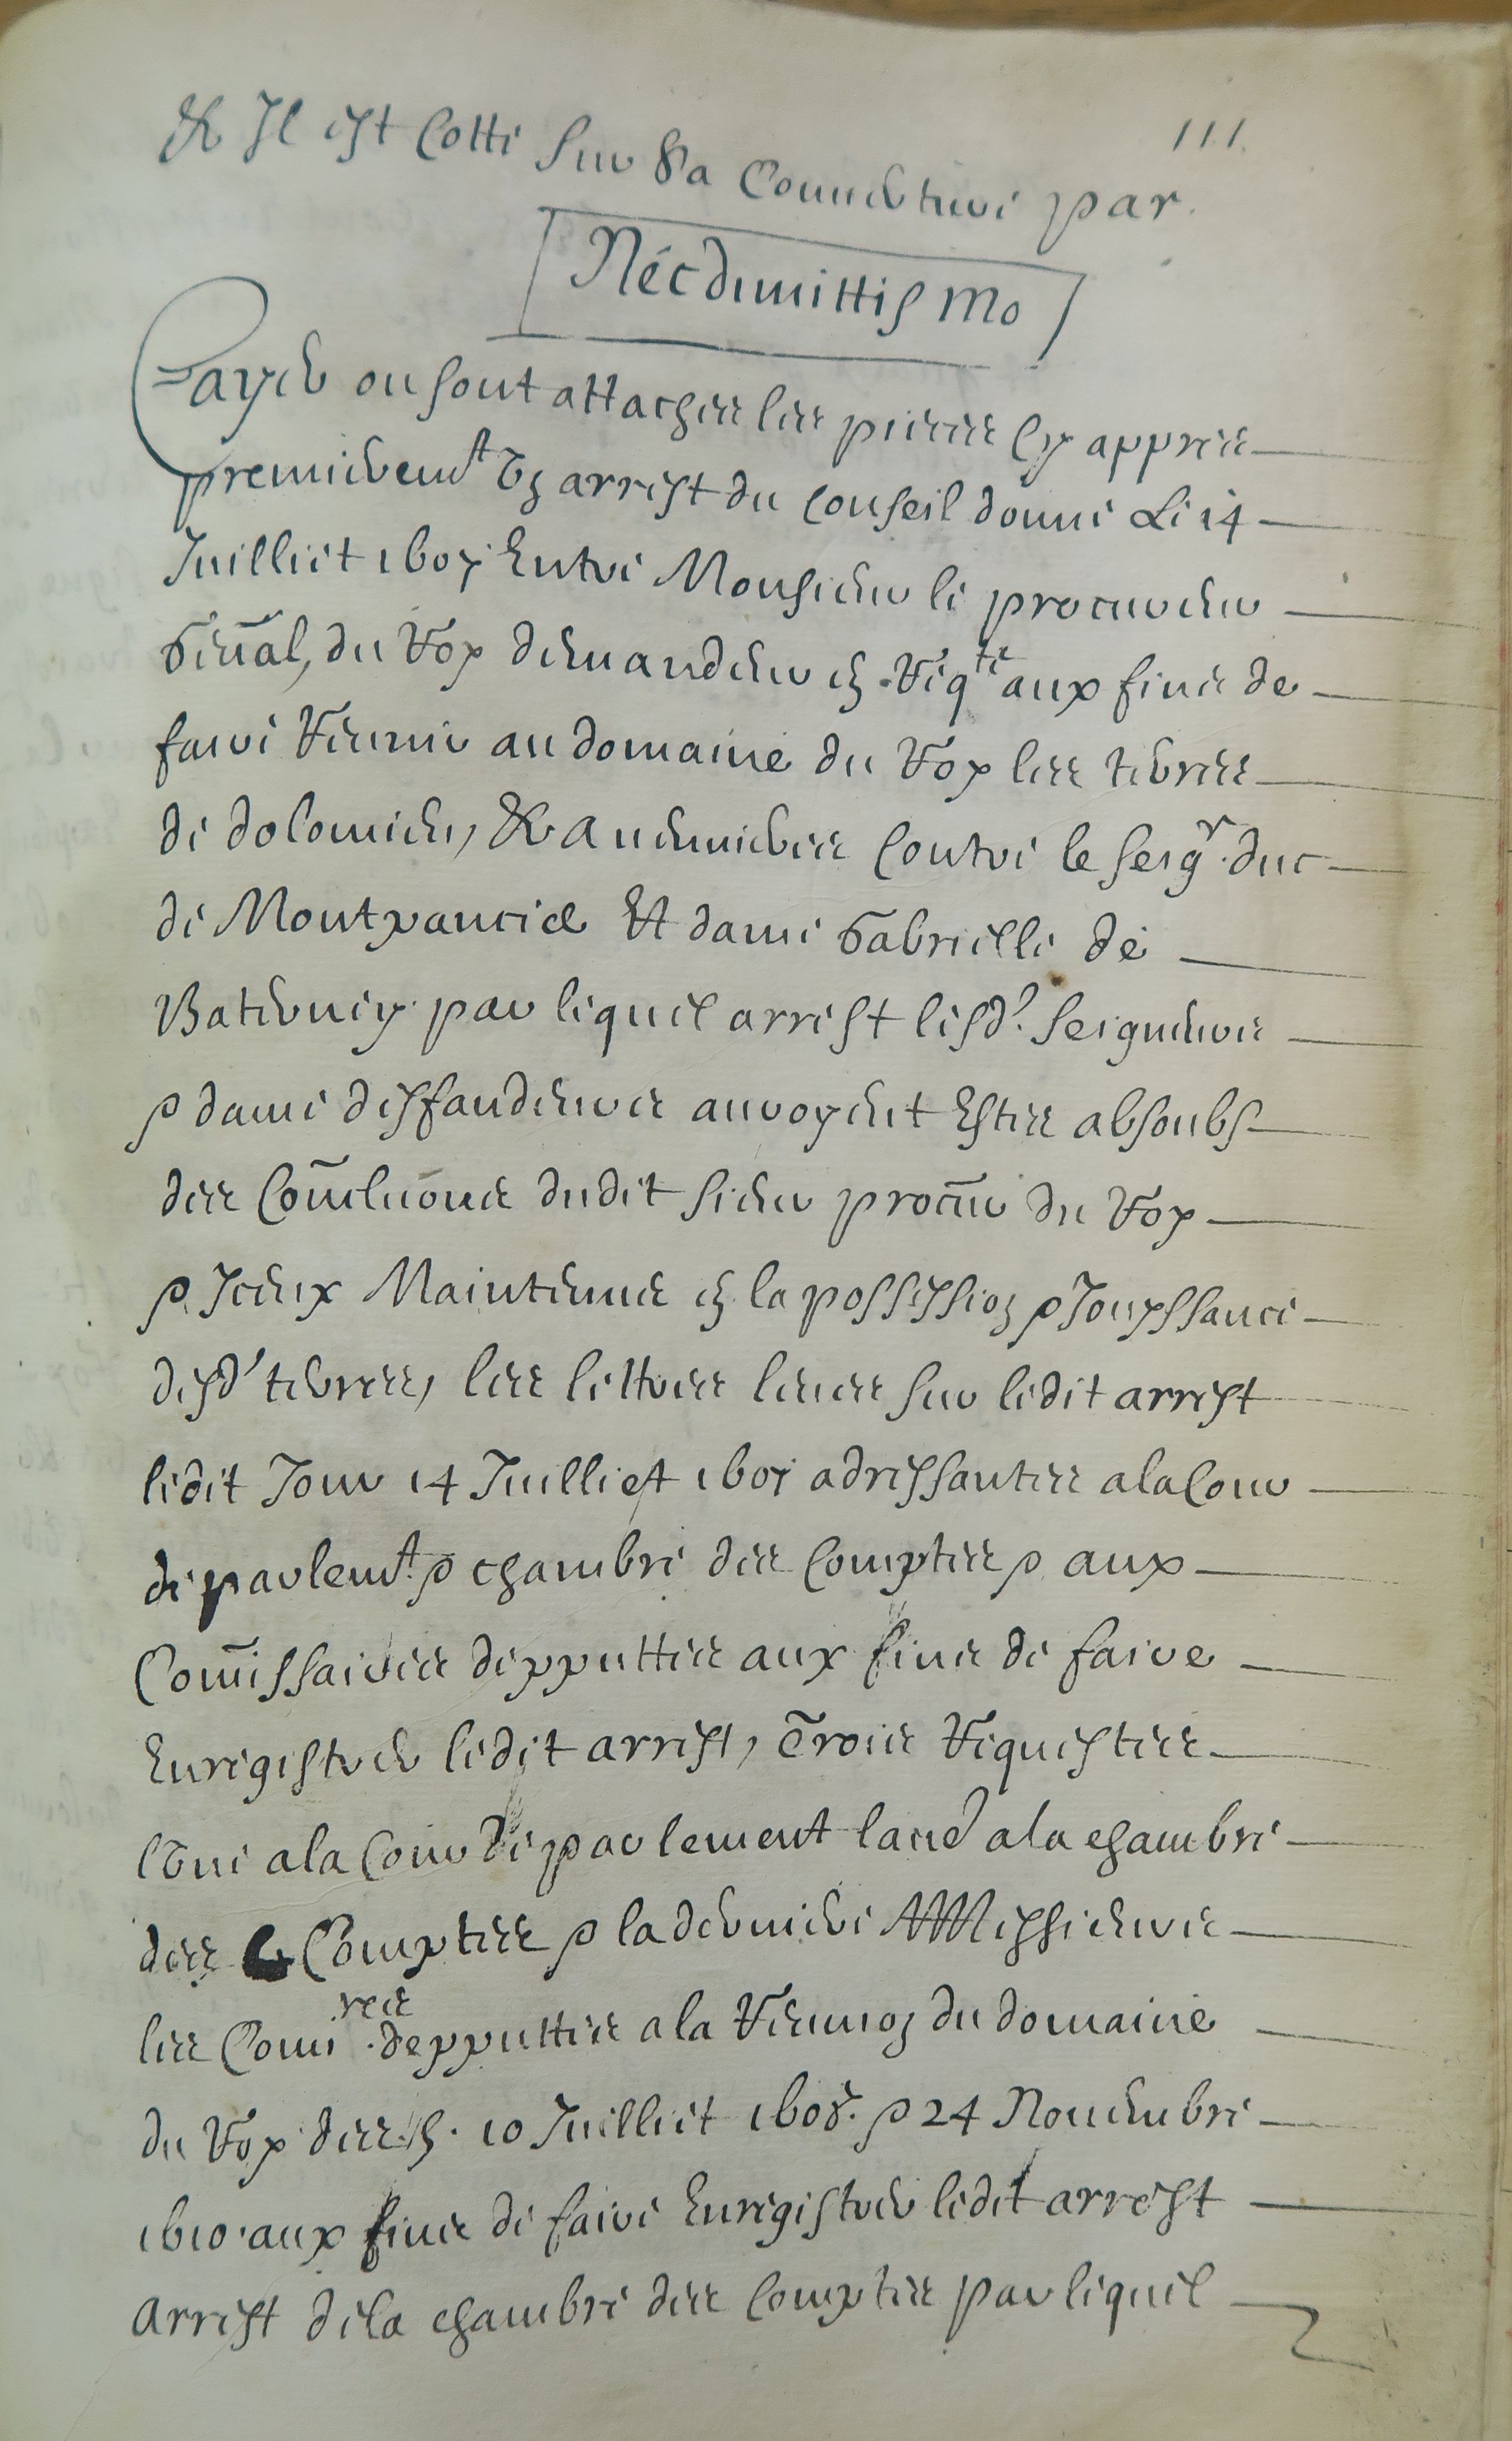 111.
& Il est Cotté sur Sa Couverture par
Nec dimittis mo
Cayer ou sont attachees les pieces Cy appres
premierem.t Ung arrest du Conseil donné Le 14
Juilliet 1607 Entre Monsieur le procureur
Gen̄al, du Roy demandeur en Reqte aux fins de
faire Reunir au domaine du Roy les terres
de dolomieu, & Auermieres Contre le seigr. duc
de Montpancier Et dame Gabrielle de
Baterney par lequel arrest lesd. seigneurs
& dame deffandeurs auroyent Estes absoubs
des Com̄luōns dudit sieur procūr du Roy
& Iceux Maintenus en la possession & Jouyssance
desd. terres, les lettres leuees sur ledit arrest
ledit Jour 14 Juilliet 1607 adressantes a la Cour
de parlemt. & chambre des Comptes & aux
Com̄issaires depputtes aux fins de faire
Enregistrer ledit arrest, Trois Requestes
lune a la Cour de parlement laued a la chambre
des Comptes & la derniere A Messieurs
les Comires. depputtes a la Reunion du domaine
du Roy des 5. 10 Juilliet 1608. & 24 Nouembre
1610. aux fins de faire Enregistrer ledit arrest
Arrest de la chambre des Comptes par lequel